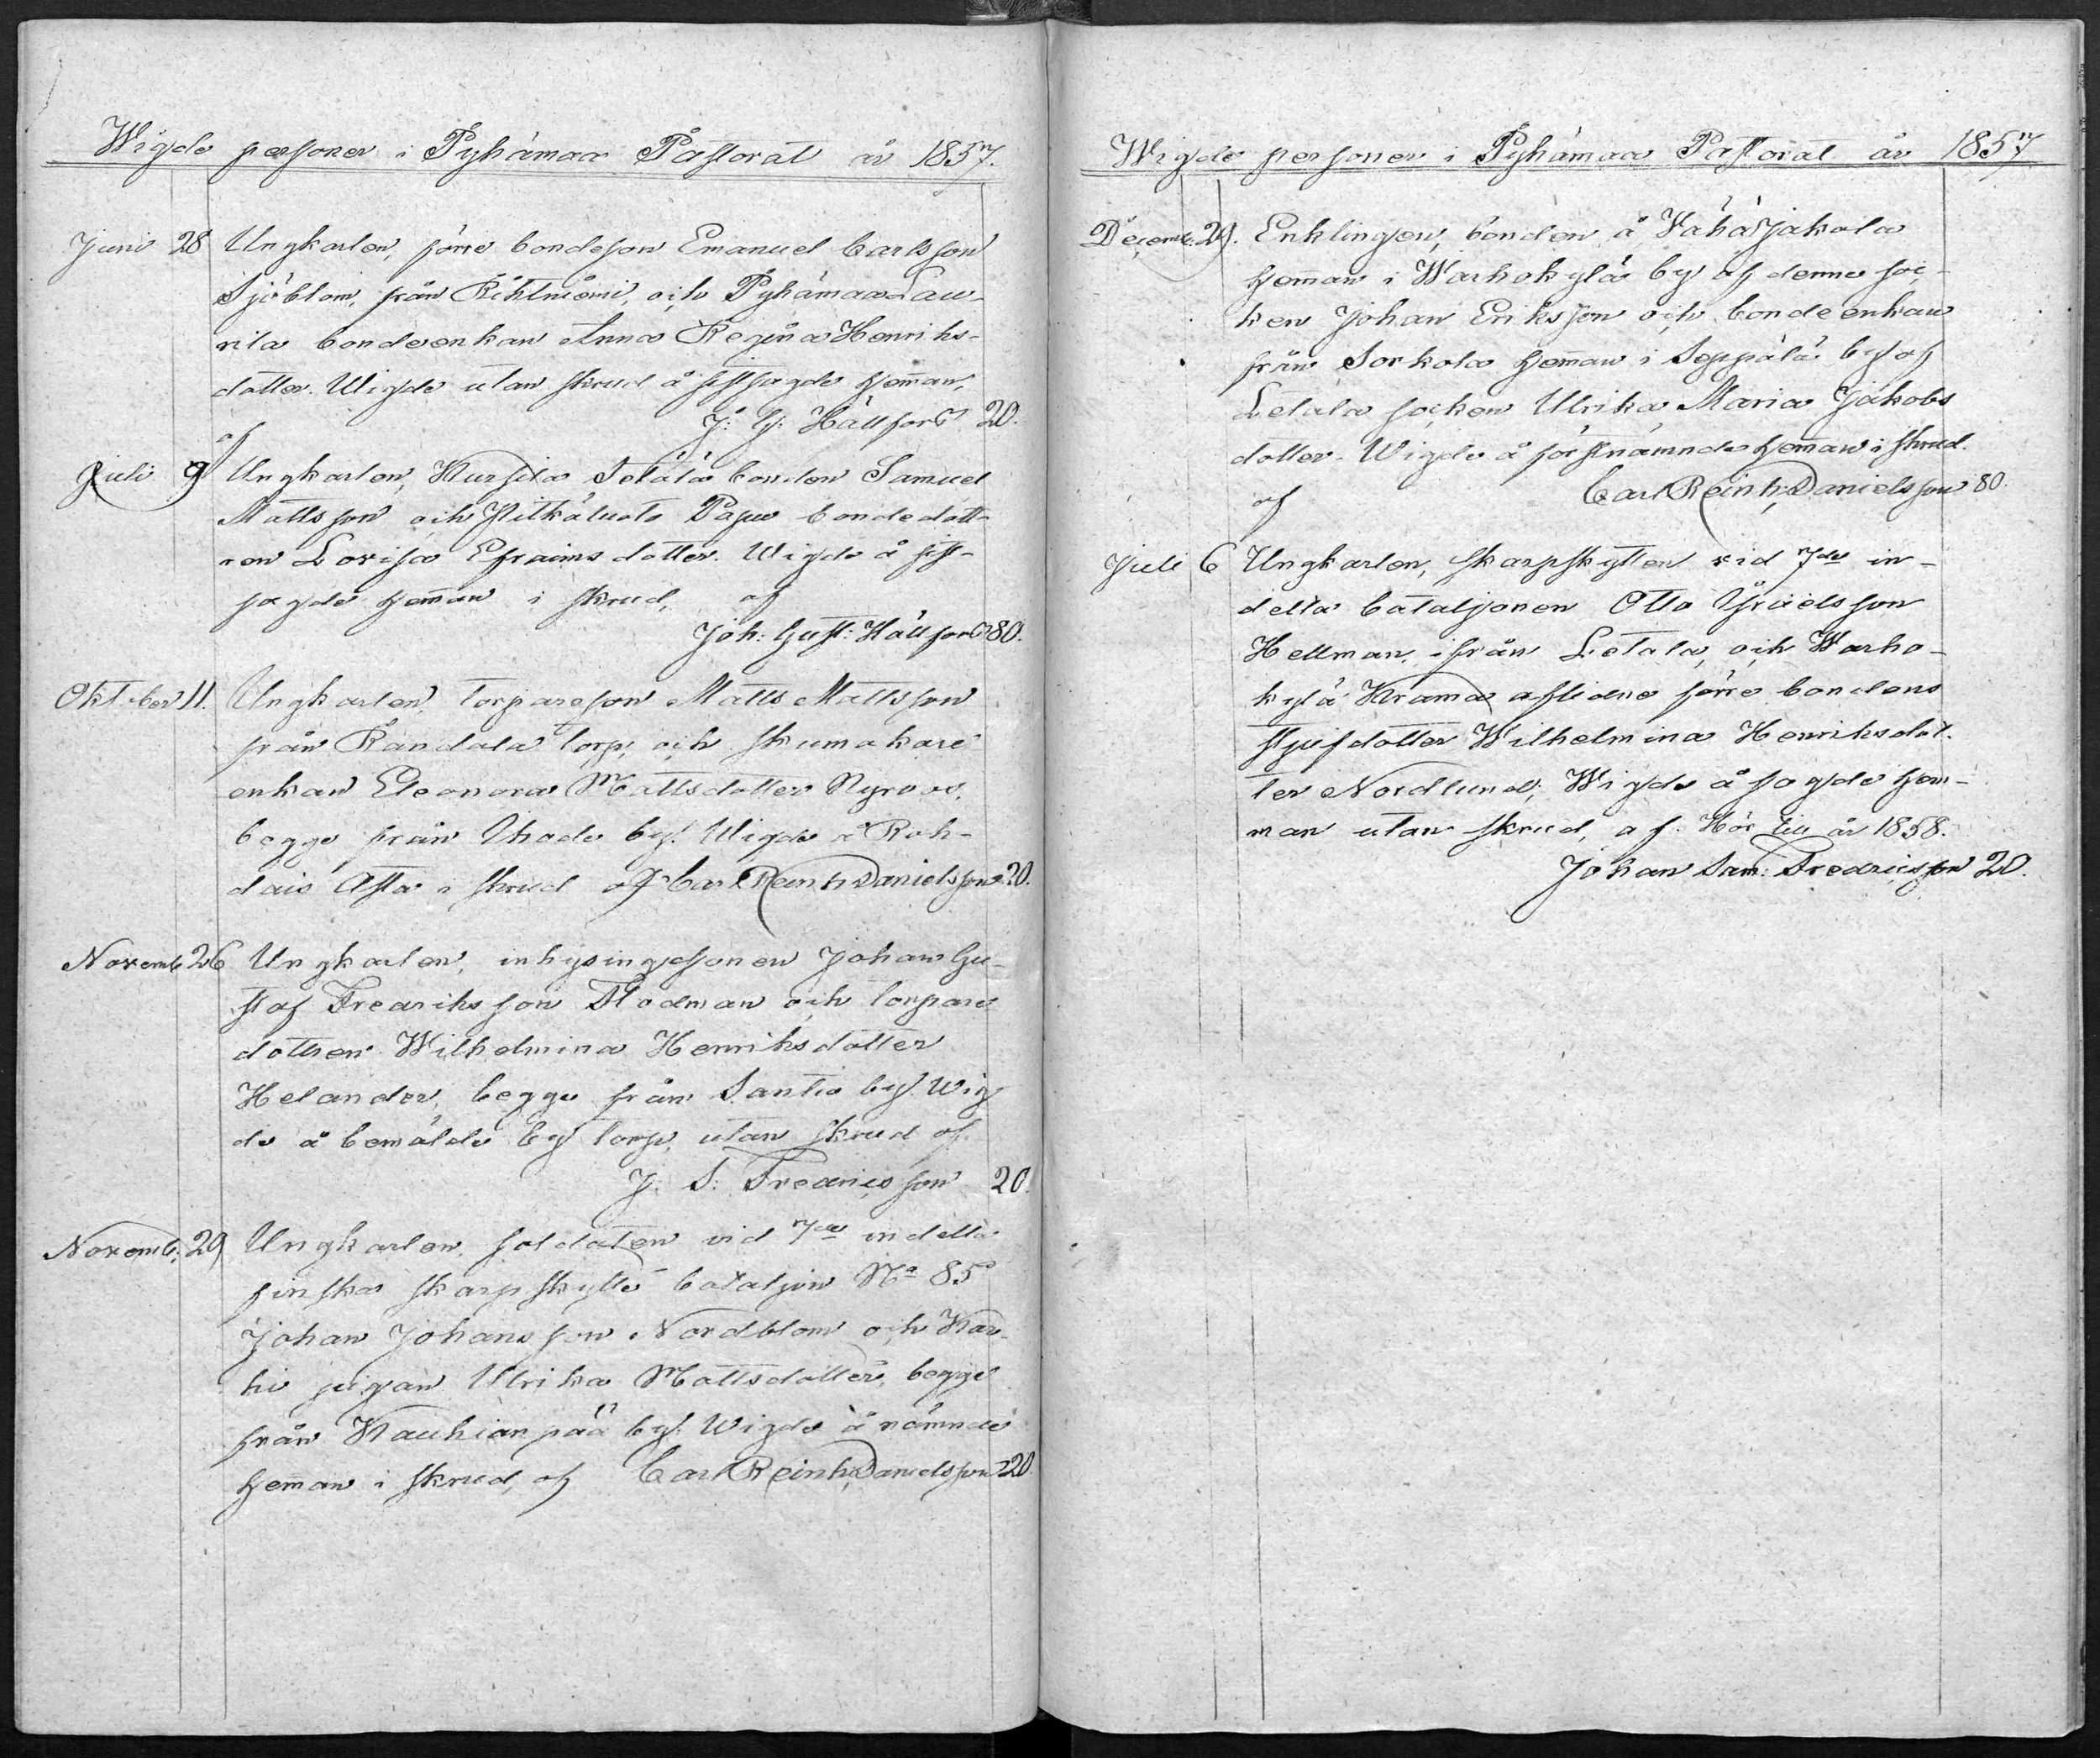 Wigde personer i Pyhämaa Pastorat år 1857.
Juni 28 Ungkarlen, förre bondeson Emanuel Carlsson
Sjöblom, från Rihtniemi, och Pyhämaa Lau-
rila bondeenkan Anna Regina Henriks-
dotter. Wigde utan skrud å sistsagde heman,
af J: G: Hällfors 20.
Juli 9 Ungkarlen, Kursila Setälä bonden Samuel
Mattsson och Pitkäluoto Papu bondedott-
ren Lovisa Efraimsdotter. Wigde å sist-
sagde heman i skrud, af
Joh: Gust: Hällfors 80.
Oktober 11. Ungkarlen, torpareson Matts Mattsson
från Randala torp, och skumakare
enkan Eleonora Mattsdotter Nyroos,
begge från Ihode by. Wigde å Roh-
dais Asta i skrud af Carl Reinh. Danielsson 20.
Novemb. 26 Ungkarlen, inhysingssonen Johan Gu-
staf Fredriksson Flodman och torpare
dottren Wilhelmina Henriksdotter
Helander, begge från Santio by. Wig
de å bemälde by torp, utan skrud af
J: S: Fredricsson 20.
Novemb. 29 Ungkarlen, soldaten vid 7de indelta
finska skarpskytte bataljon No 85
Johan Johansson Nordblom och Kar-
hi pigan Ulrika Mattsdotter, begge
från Kauhianpää by. Wigde å nämnde
heman i skrud, af Carl Reinh. Danielsson 20
Wigde personer i Pyhämaa Pastorat år 1857
Decemb. 29. Enklingen, bonden å Vähä Jakola
heman i Warhokylä by af denne soc-
ken Johan Eriksson och bondeenkan
från Sorkola heman i Seppälä by af
Letala socken Ulrika Maria Jakobs
dotter. Wigde å förstnämnde heman i skrud.
af Carl Reinh. Danielsson 80.
Juli 6 Ungkarlen, skarpskytten vid 7de in-
delta bataljonen Otto Israelsson
Hellman, ifrån Letala, och Warho-
kylä Krama aflidne förre bondens
styfdotter Wilhelmina Henriksdot-
ter Nordlund; Wigde å sagde hem-
man utan skrud, af. Hör till år 1858.
Johan Sam: Fredricsson 20.